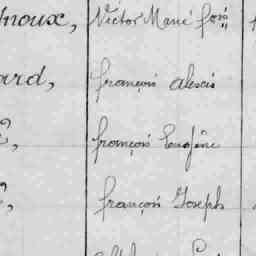 noux, Victor Marie
ard, françois alexis
françois Eugène
françois Joseph